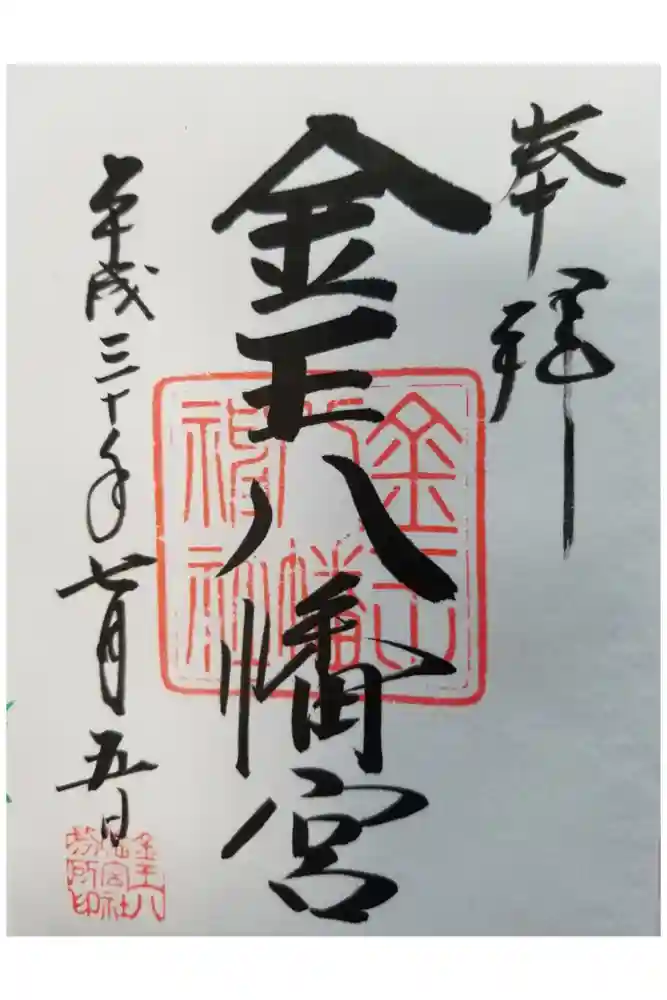 奉拝
金王八幡宮
金王八幡神社
平成三十年七月五日
金王八幡宮社務所印